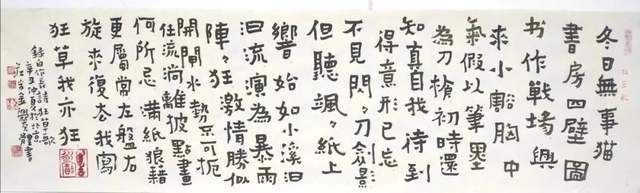 冬日無事猫
書房四壁圖
书作戰場興
来小豁胸中
氣假以筆墨
為刀槍初時還
知真自我待到
得意形已忘
不見閃々刀劍影
但聽颯々紙上
響始如小溪汩
汩流演為暴雨
陣々狂激情勝似
開閘水勢不可扼
任流淌離披點畫
何所忌满紙狼藉
更屬當左盤右
旋来復去我寫
狂草我亦狂
錄自作長詩狂草歌
辛丑仲夏於北京